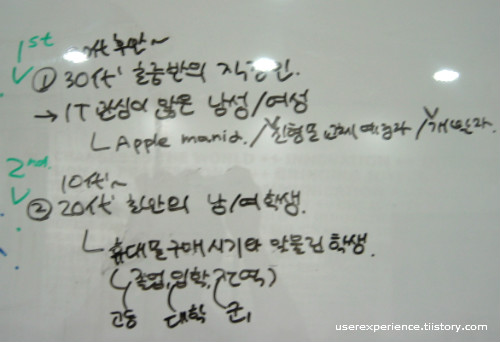 1st
대 후반~
✓ ① 30대 초중반의 직장인.
→ IT 관심이 많은 남성/여성
Apple mania. / 신형폰 교체 예정자 / 개발자.
2nd.
10대~
✓ ② 20대 초반의 남/여학생.
휴대폰 구매시기와 맞물린 학생.
(졸업, 입학, 전역)
고등 대학 군,
userexperience.tiistory.com